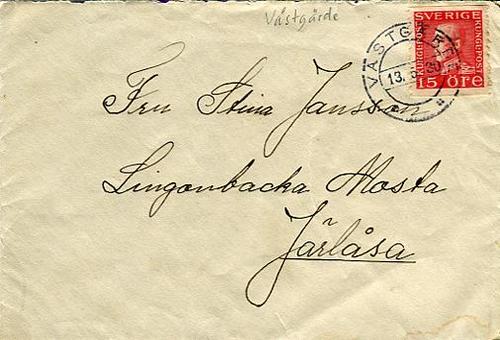 Västgärde
SVERIGE
15 ÖRE
13. 5. 30
Fru Stina Jansson
Lingonbacka Mosta
Järlåsa